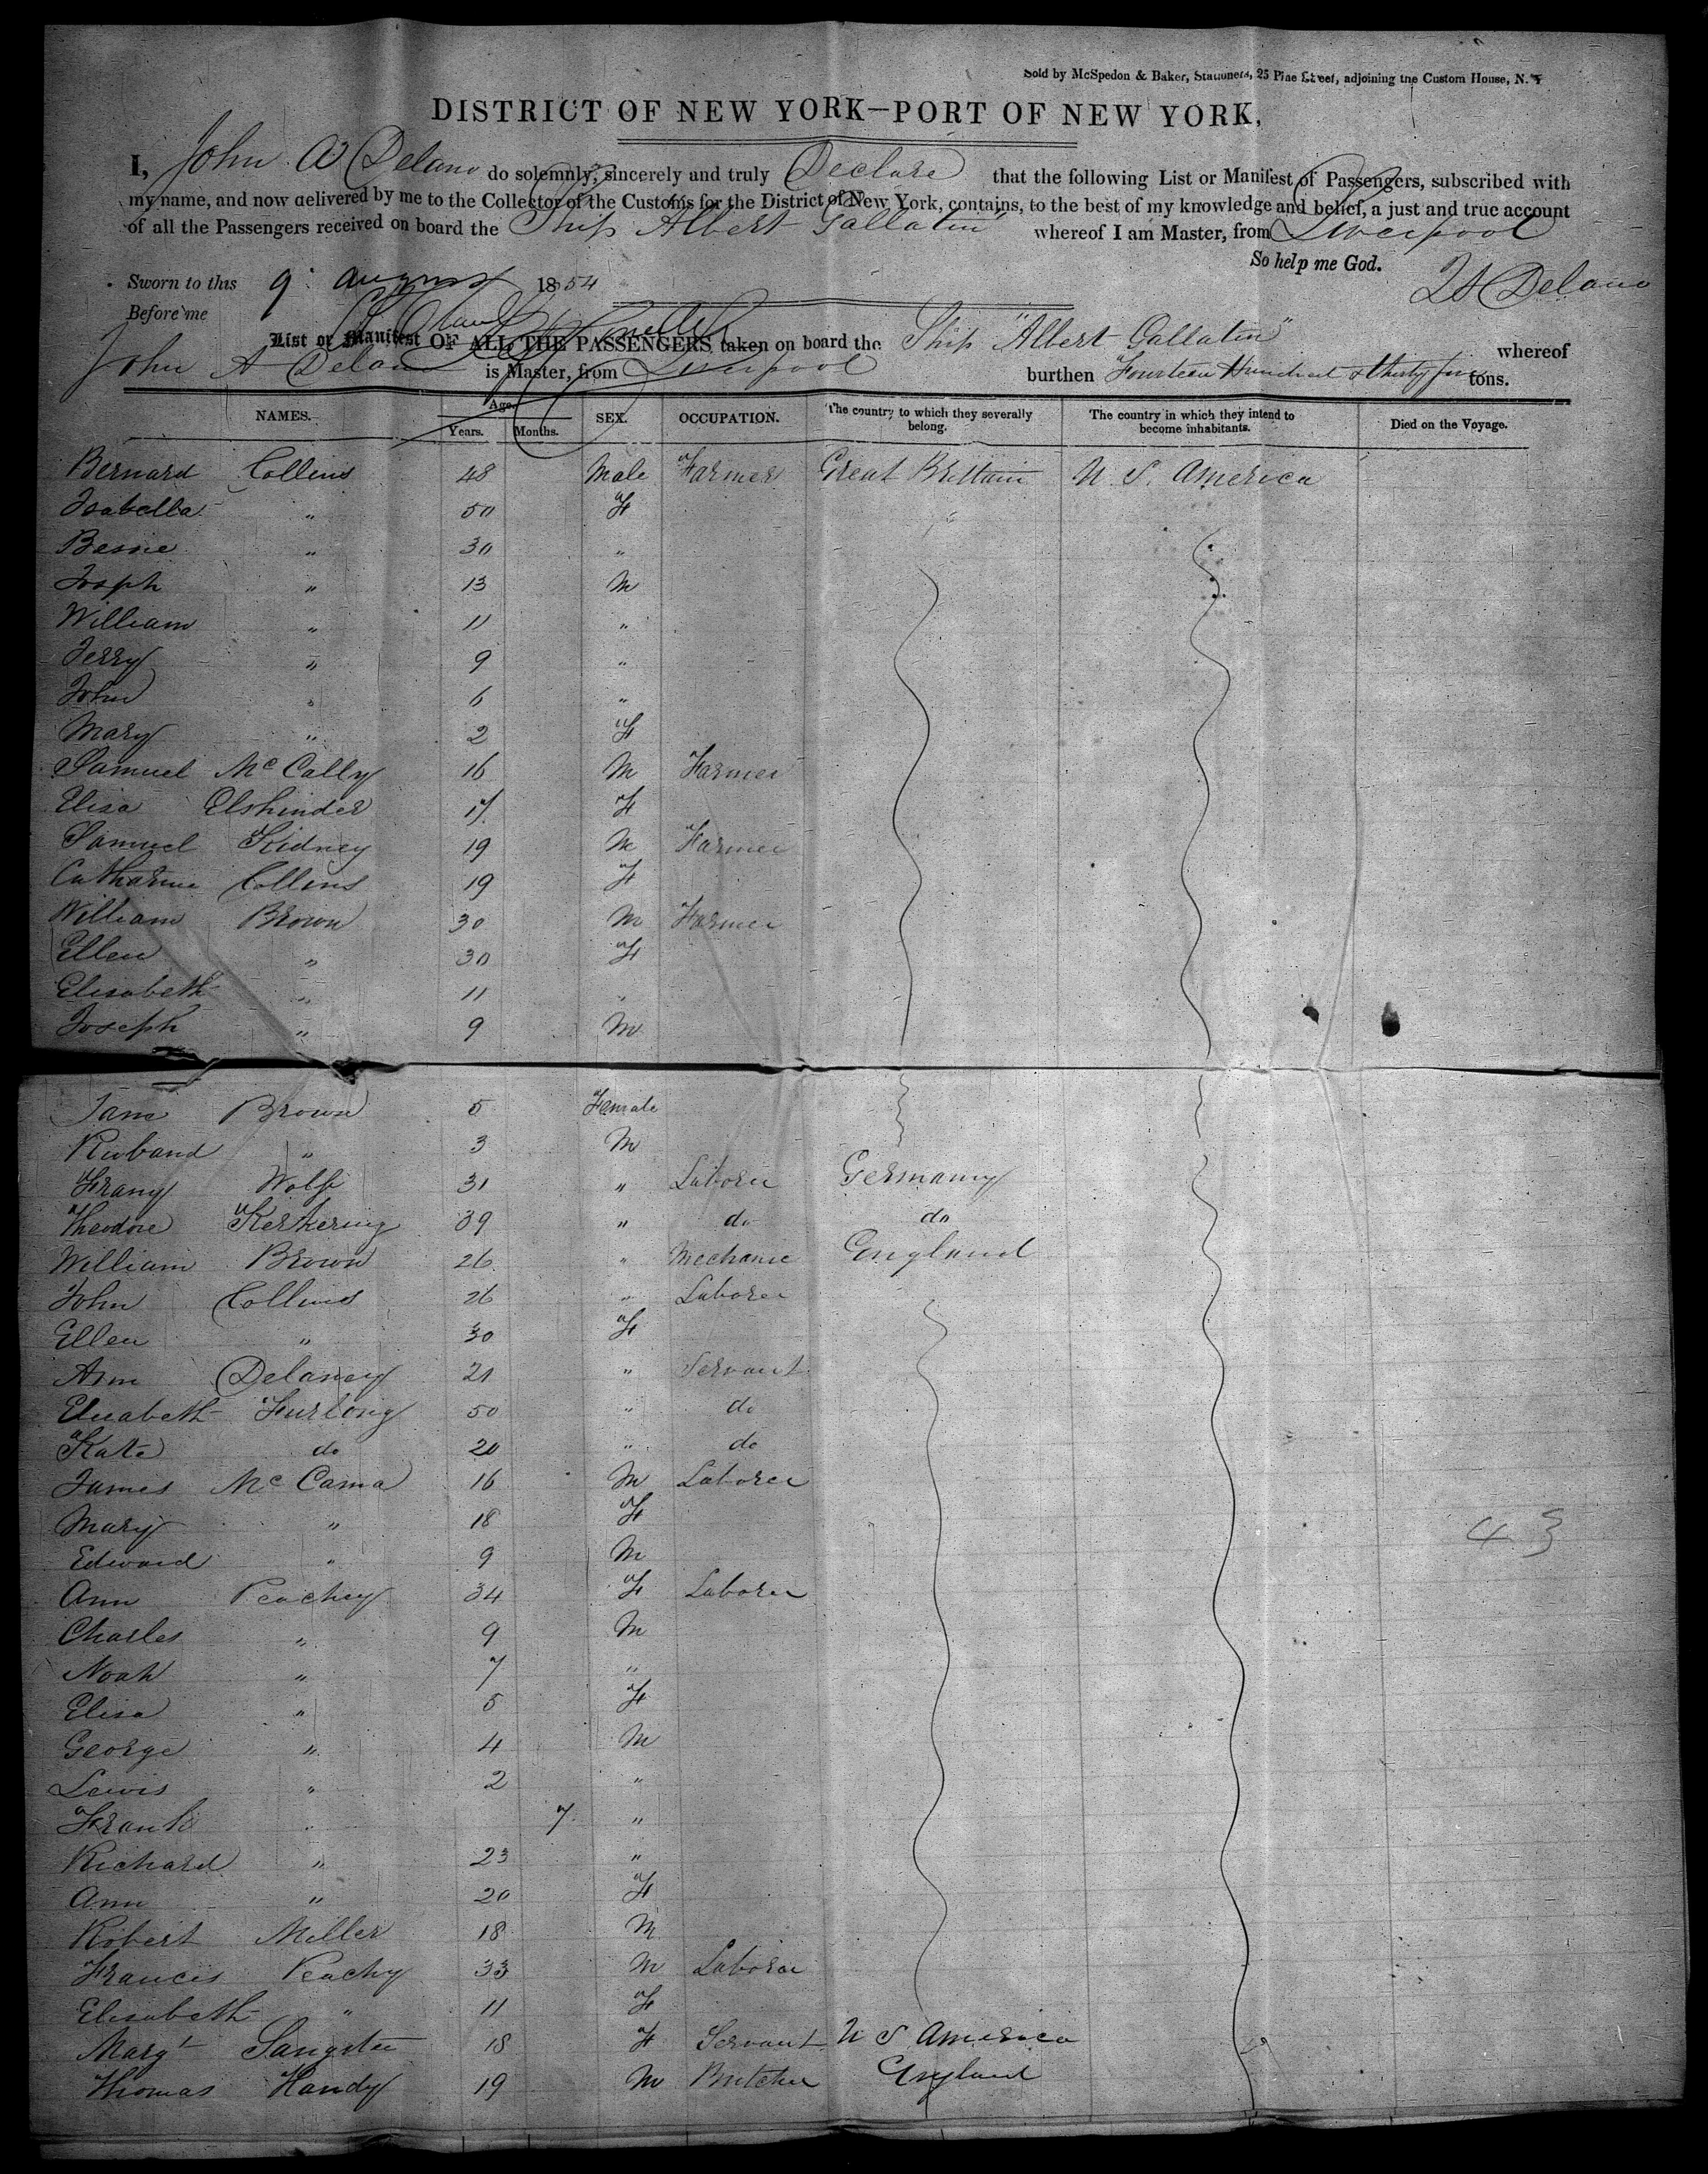 Sold by McSpedon & Baker, Stationers, 25 Pine Street, adjoining the Custom House, N. Y
DISTRICT OF NEW YORK—PORT OF NEW YORK,
I, John A Delano do solemnly, sincerely and truly Declare that the following List or Manifest of Passengers, subscribed with
my name, and now delivered by me to the Collector of the Customs for the District of New York, contains, to the best of my knowledge and belief, a just and true account
of all the Passengers received on board the Ship Albert Gallatin whereof I am Master, from Liverpool
So help me God.
Sworn to this 9 August 1854 Delano
Before me
List or Manifest OF ALL THE PASSENGERS taken on board the Ship "Albert Gallatin" whereof
John A Delano is Master, from Liverpool burthen Fourteen Hundred & thirty five tons.
NAMES. Age. Years. Months. SEX. OCCUPATION. The country to which they severally belong. The country in which they intend to become inhabitants. Died on the Voyage.
Bernard Collins 48 Male Farmer Great Brittain U. S. America
Isabella " 50 F
Bessie " 30 "
Joseph " 13 M
William " 11 "
Jerry " 9 "
John " 6 "
Mary " 2 F
Samuel McCally 16 M Farmer
Elisa Elshinder 17 F
Samuel Kidney 19 M Farmer
Catharine Collins 19 F
William Brown 30 M Farmer
Ellen " 30 F
Elisabeth " 11 "
Joseph " 9 M
Jane Brown 5 Female
" 3 M
Franz Wolf 31 " Laborer Germany
Theodore Kerkering 39 " do do
William Brown 26 " Mechanic England
John Collins 26 " Laborer
Ellen " 30 F
Ann Delaney 21 " Servant
Elisabeth Furlong 50 " do
Kate do 20 " do
James McCama 16 M Laborer
Mary " 18 F
Edward " 9 M
43
Ann Peachey 34 F Laborer
Charles " 9 M
Noah " 7 "
Elisa " 5 F
George " 4 M
Lewis " 2 "
Frank " 7 "
Richard " 23 "
Ann " 20 F
Robert Miller 18 M
Francis Peachy 33 M Laborer
Elisabeth " 11 F
Margt Sangster 18 F Servant U S America
Thomas Handy 19 M Butcher England